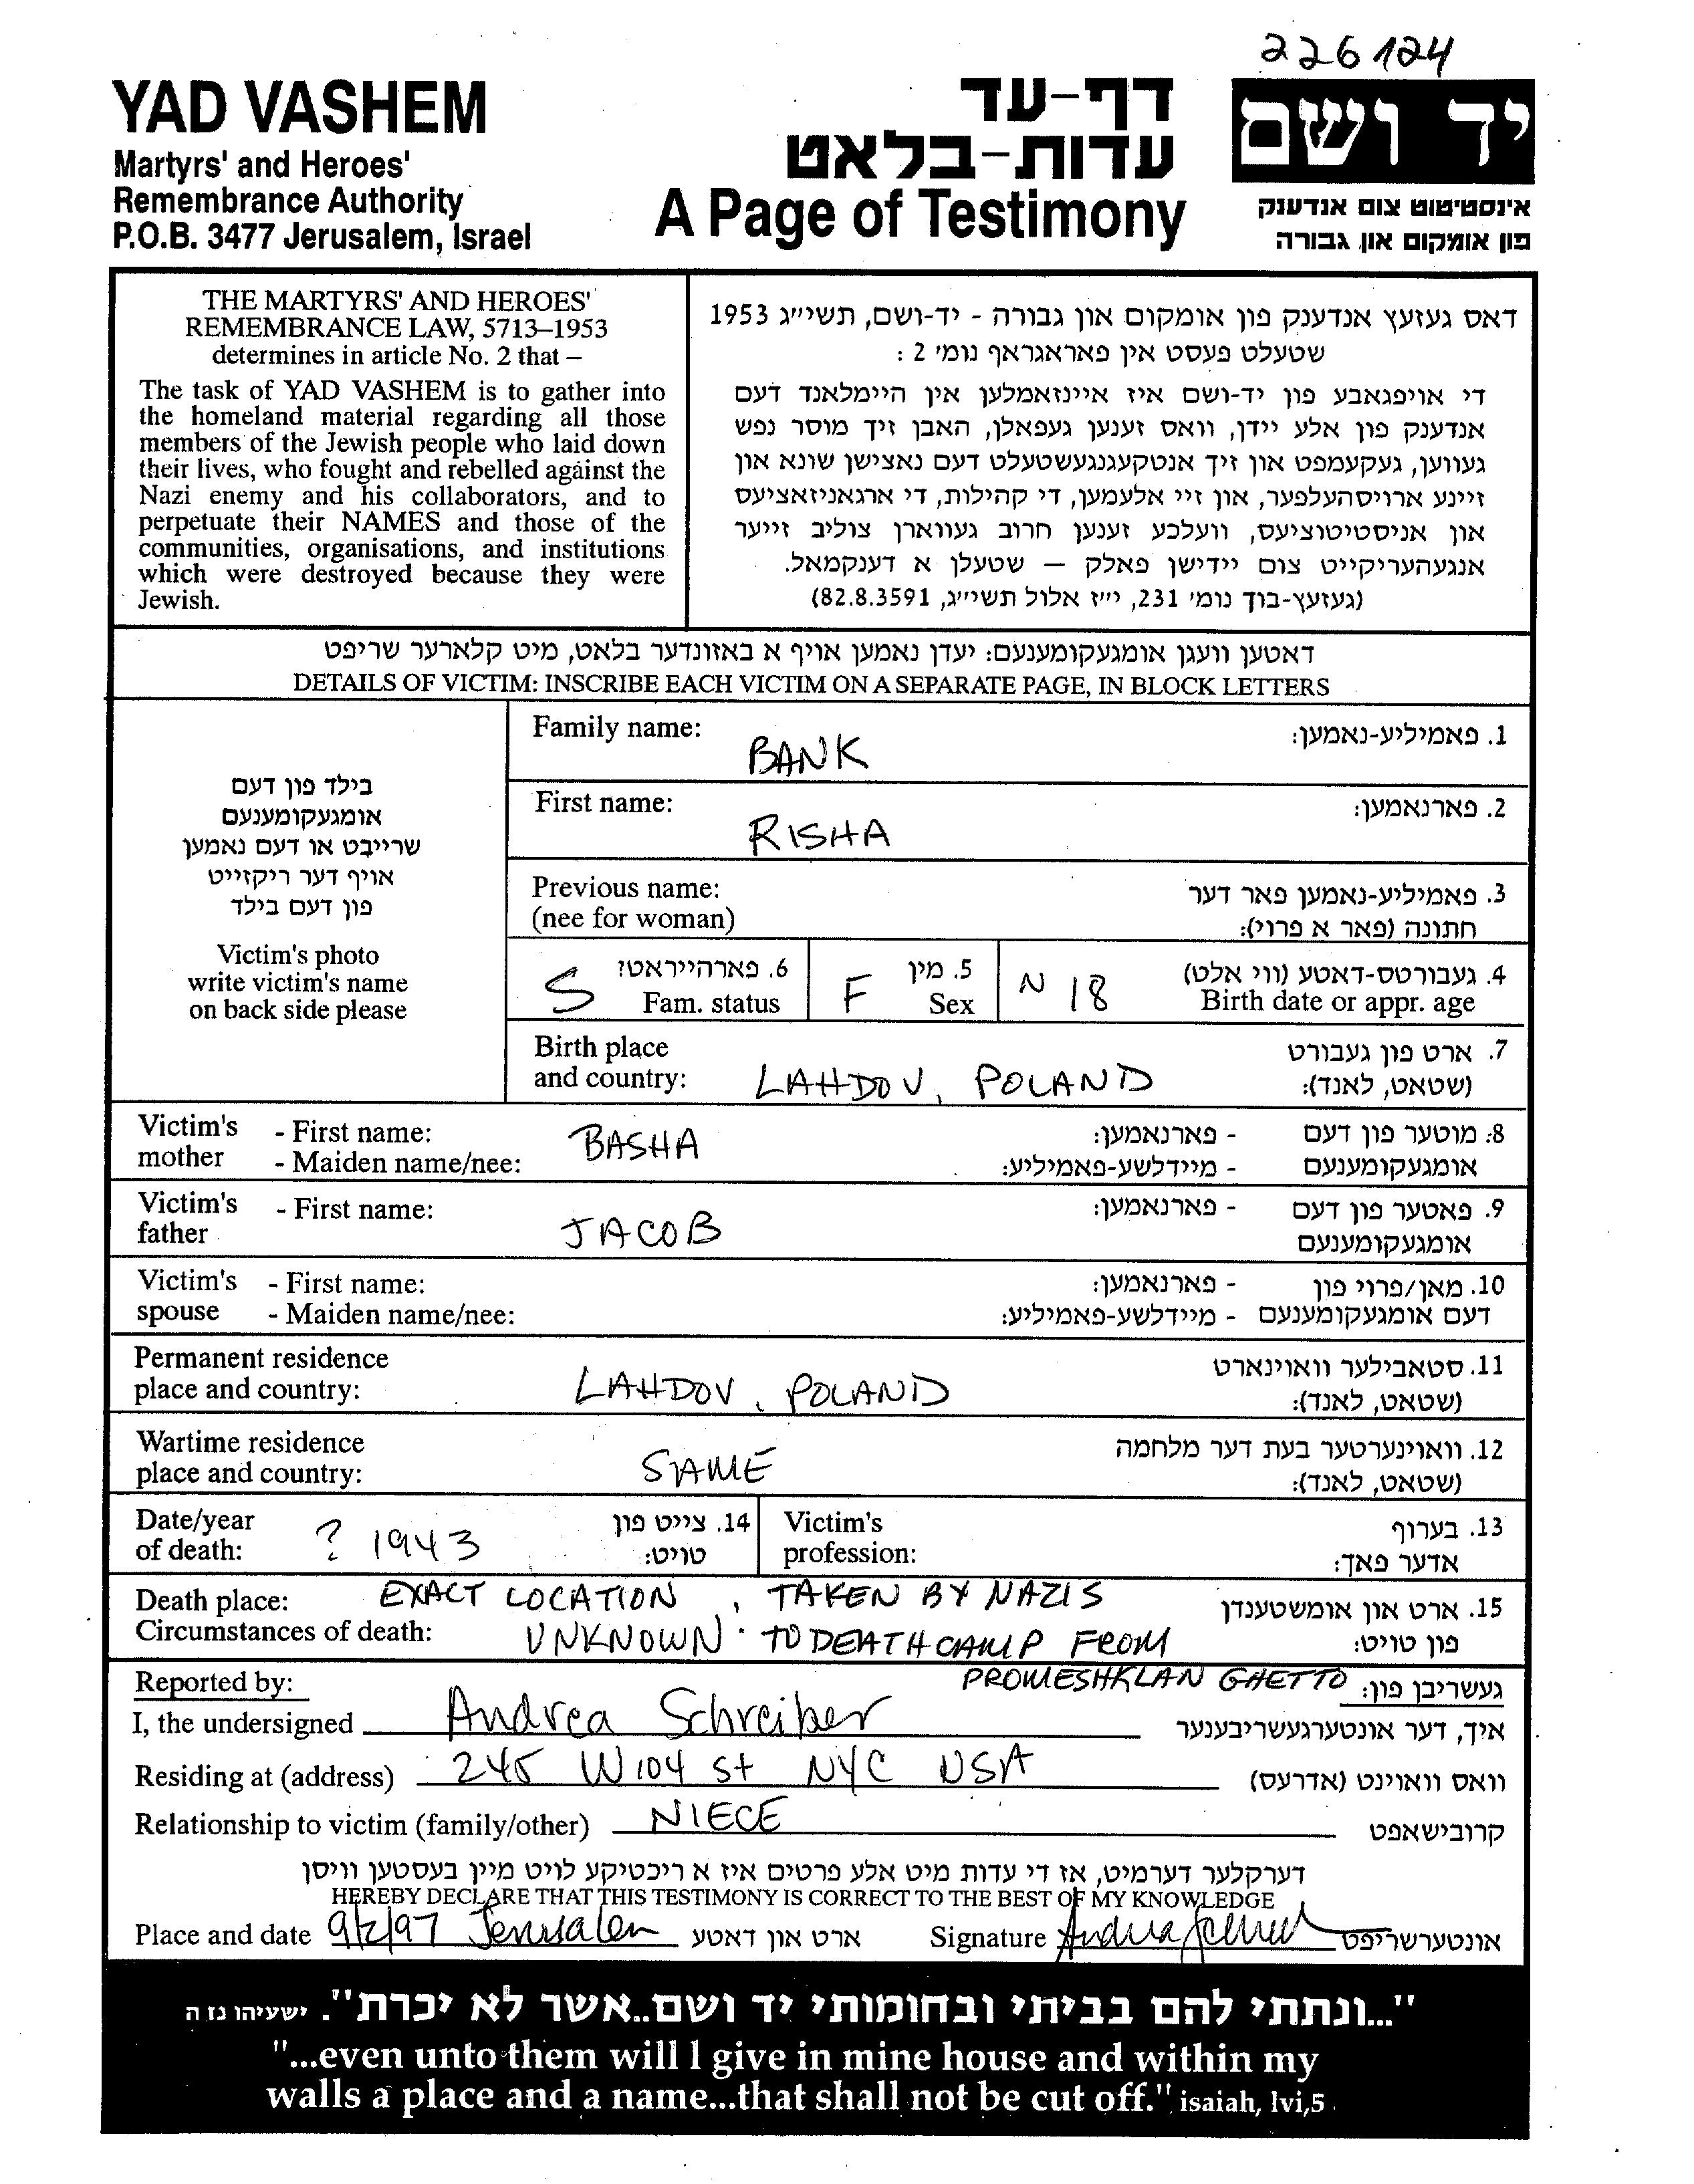 226124
YAD VASHEM
Martyrs' and Heroes'
Remembrance Authority
P.O.B. 3477 Jerusalem, Israel
דף-עד
עדות-בלאט
A Page of Testimony
יד ושם
אינסטיטוט צום אנדענק
פון אומקום און גבורה
THE MARTYRS' AND HEROES'
REMEMBRANCE LAW, 5713–1953
determines in article No. 2 that –
The task of YAD VASHEM is to gather into
the homeland material regarding all those
members of the Jewish people who laid down
their lives, who fought and rebelled against the
Nazi enemy and his collaborators, and to
perpetuate their NAMES and those of the
communities, organisations, and institutions
which were destroyed because they were
Jewish.
דאס געזעץ אנדענק פון אומקום און גבורה - יד-ושם, תשי״ג 1953
שטעלט פעסט אין פאראגראף נומ׳ 2 :
די אויפגאבע פון יד-ושם איז איינזאמלען אין היימלאנד דעם
אנדענק פון אלע יידן, וואס זענען געפאלן, האבן זיך מוסר נפש
געווען, געקעמפט און זיך אנטקעגנגעשטעלט דעם נאצישן שונא און
זיינע ארויסהעלפער, און זיי אלעמען, די קהילות, די ארגאניזאציעס
און אניסטיטוציעס, וועלכע זענען חרוב געווארן צוליב זייער
אנגעהעריקייט צום יידישן פאלק — שטעלן א דענקמאל.
(געזעץ-בוך נומ׳ 231, י״ז אלול תשי״ג, 82.8.3591)
דאטען וועגן אומגעקומענעם: יעדן נאמען אויף א באזונדער בלאט, מיט קלארער שריפט
DETAILS OF VICTIM: INSCRIBE EACH VICTIM ON A SEPARATE PAGE, IN BLOCK LETTERS
בילד פון דעם
אומגעקומענעם
שרייבט או דעם נאמען
אויף דער ריקזייט
פון דעם בילד
Victim's photo
write victim's name
on back side please
Family name: BANK 1. פאמיליע-נאמען:
First name: RISHA 2. פארנאמען:
Previous name: 3. פאמיליע-נאמען פאר דער
(nee for woman) חתונה (פאר א פרוי):
S 6. פארהייראט? F 5. מין N 18 4. געבורטס-דאטע (ווי אלט)
Fam. status Sex Birth date or appr. age
Birth place 7. ארט פון געבורט
and country: LAHDOV, POLAND (שטאט, לאנד):
Victim's - First name: BASHA - פארנאמען: 8. מוטער פון דעם
mother - Maiden name/nee: - מיידלשע-פאמיליע: אומגעקומענעם
Victim's - First name: JACOB - פארנאמען: 9. פאטער פון דעם
father אומגעקומענעם
Victim's - First name: - פארנאמען: 10. מאן/פרוי פון
spouse - Maiden name/nee: - מיידלשע-פאמיליע: דעם אומגעקומענעם
Permanent residence 11. סטאבילער וואוינארט
place and country: LAHDOV, POLAND (שטאט, לאנד):
Wartime residence 12. וואוינערטער בעת דער מלחמה
place and country: SAME (שטאט, לאנד):
Date/year ? 1943 14. צייט פון Victim's 13. בערוף
of death: טויט: profession: אדער פאך:
Death place: EXACT LOCATION, TAKEN BY NAZIS 15. ארט און אומשטענדן
Circumstances of death: UNKNOWN. TO DEATH CAMP FROM פון טויט:
Reported by: PROMESHKLAN GHETTO געשריבן פון:
I, the undersigned Andrea Schreiber איך, דער אונטערגעשריבענער
Residing at (address) 245 W 104 St NYC USA וואס וואוינט (אדרעס)
Relationship to victim (family/other) NIECE קרובישאפט
דערקלער דערמיט, אז די עדות מיט אלע פרטים איז א ריכטיקע לויט מיין בעסטען וויסן
HEREBY DECLARE THAT THIS TESTIMONY IS CORRECT TO THE BEST OF MY KNOWLEDGE
Place and date 9/2/97 Jerusalem ארט און דאטע Signature Andrea Schreiber אונטערשריפט
"...ונתתי להם בביתי ובחומותי יד ושם..אשר לא יכרת". ישעיהו נז ה
"...even unto them will I give in mine house and within my
walls a place and a name...that shall not be cut off." isaiah, lvi,5